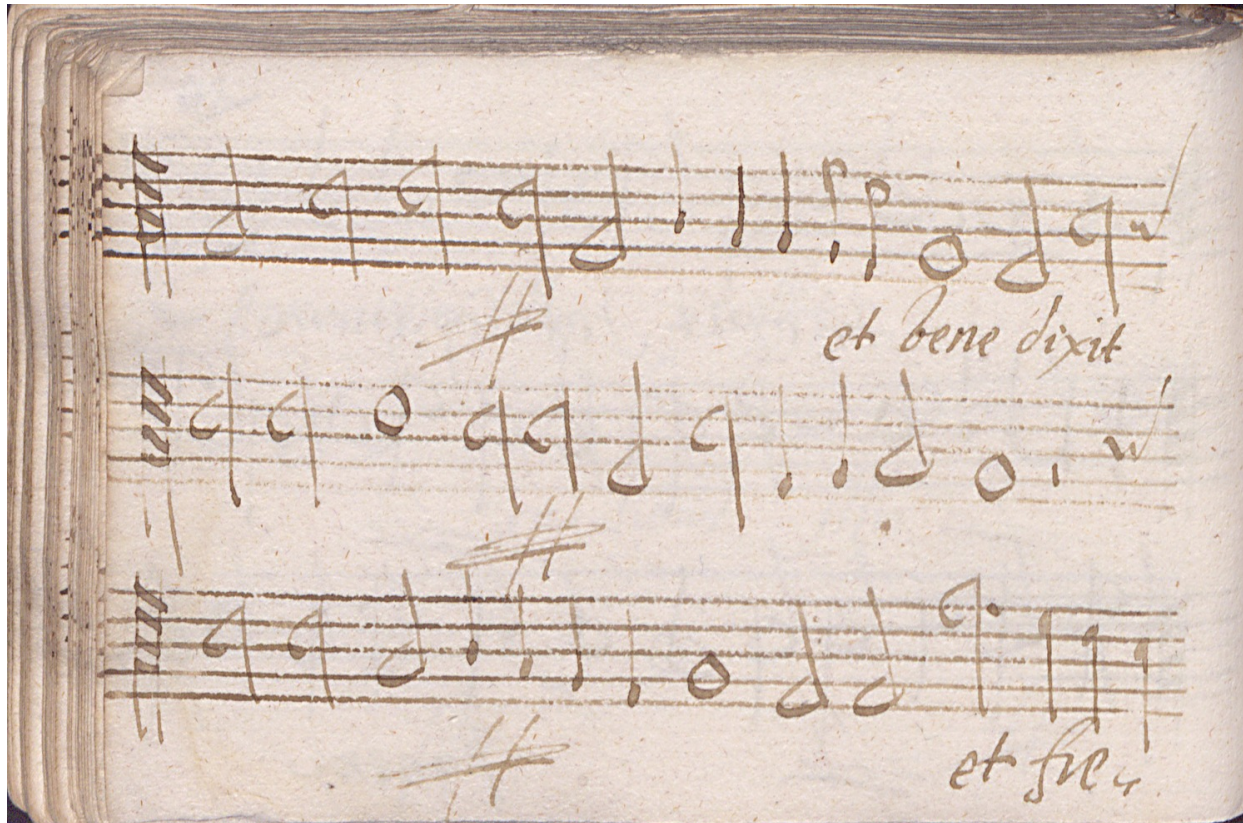 et bene dixit
et fre